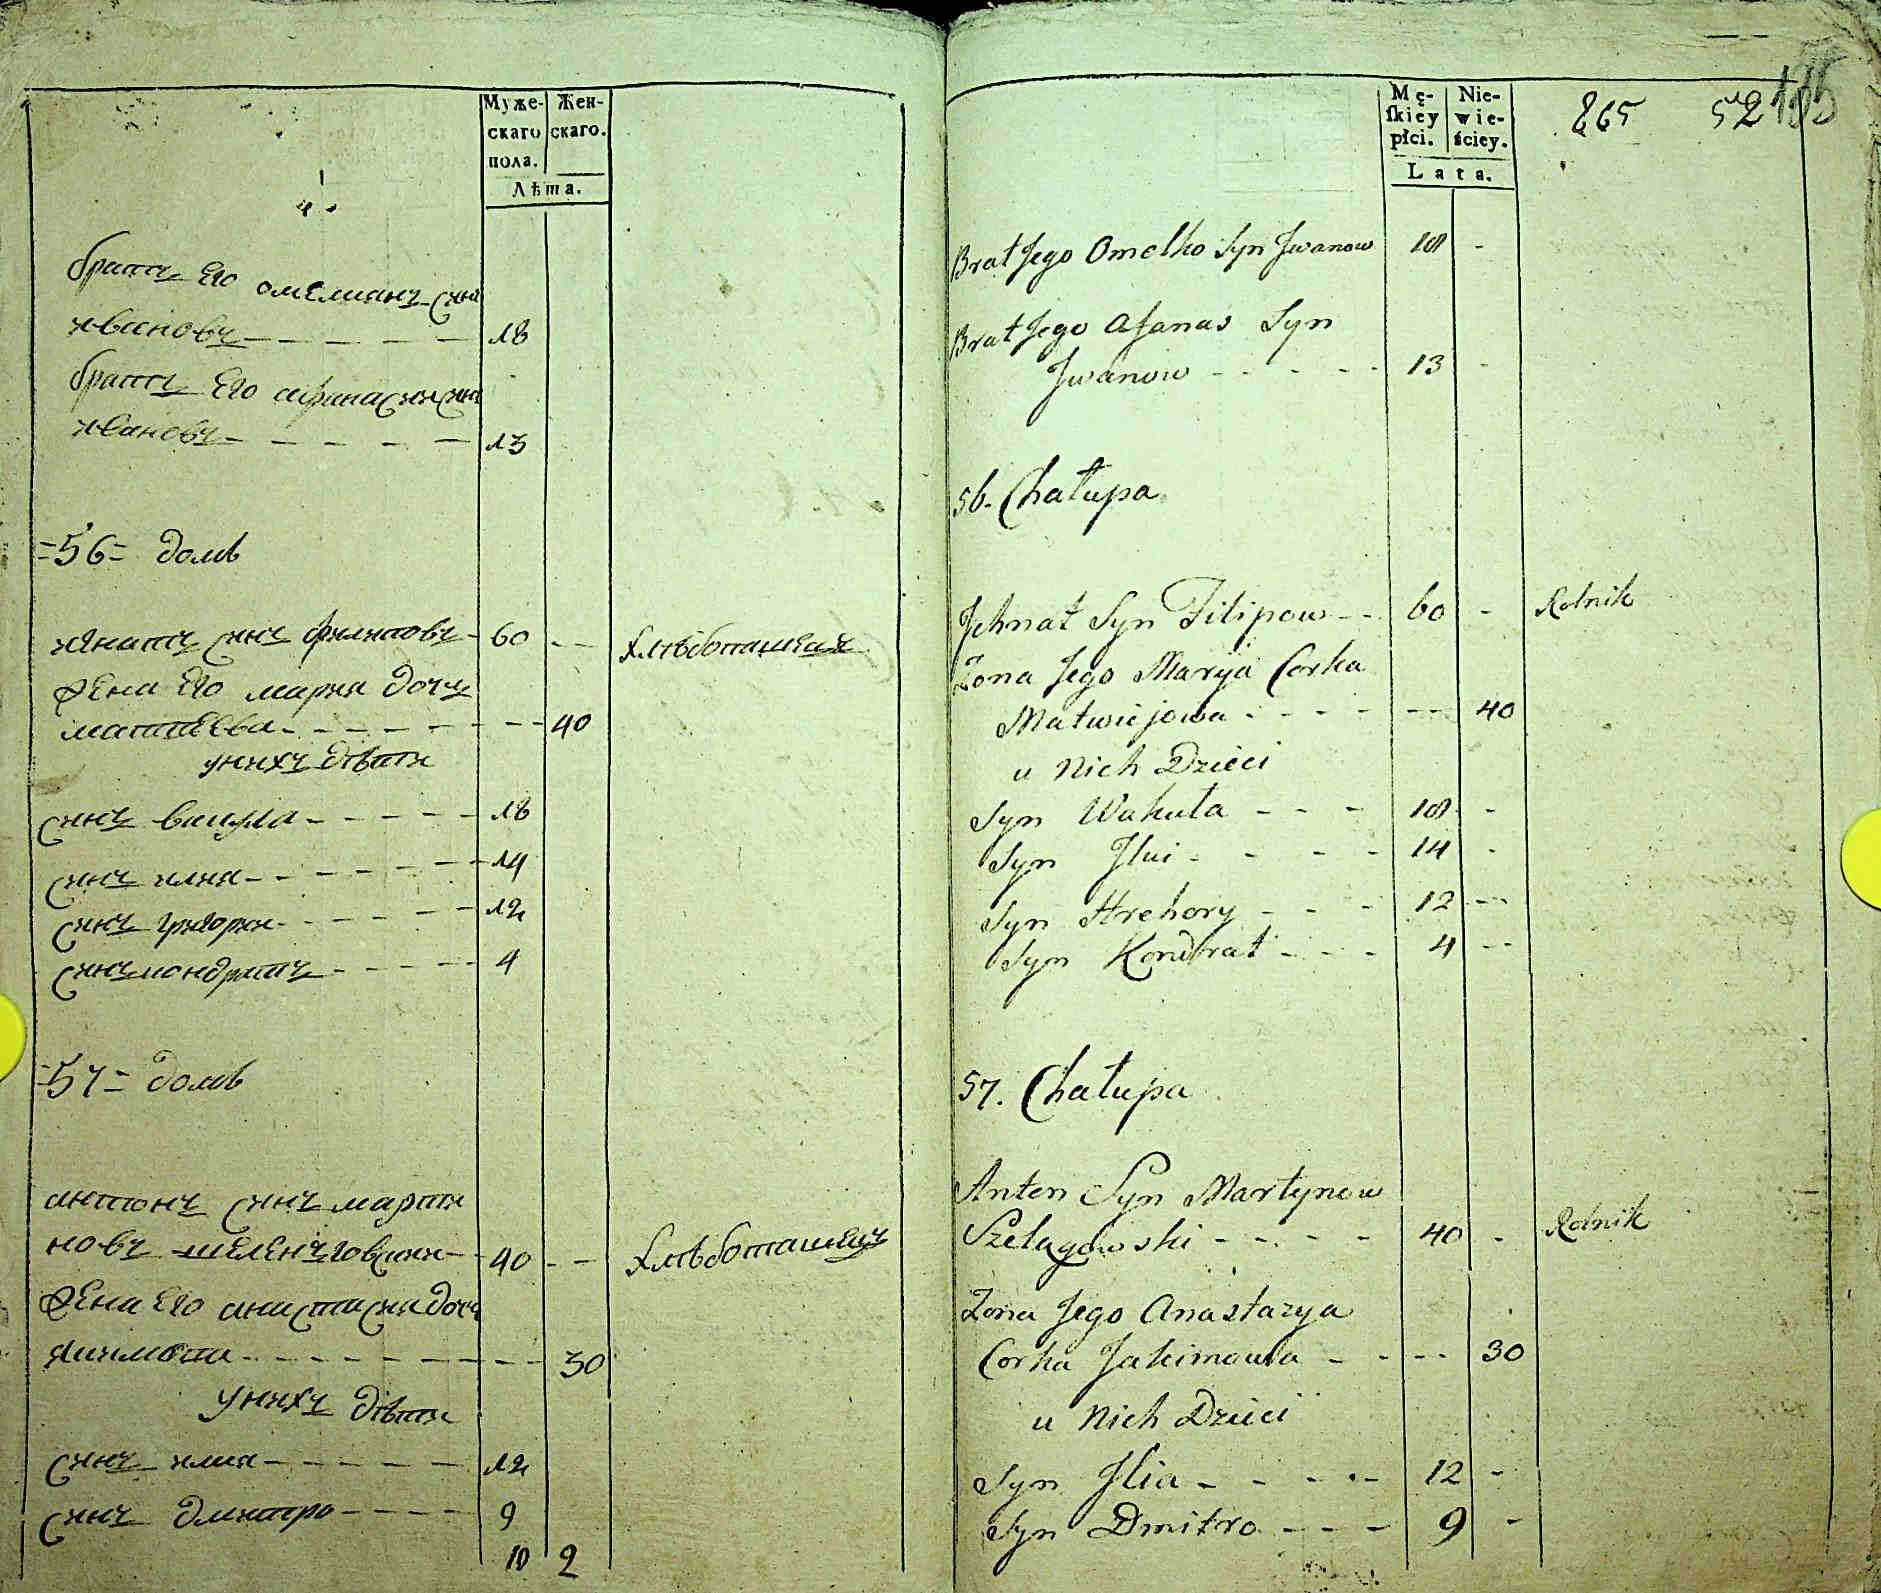 Муже-
скаго
пола.
Жен-
скаго.
Лѣта.
братъ Его омелианъ синъ
ивановъ - - - - - 18
братъ Его афанасии синъ
ивановъ - - - - - 13
=56= домъ
игнатъ синъ филиповъ - 60 - - хлѣбопашецъ
жена Его мария дочъ
матвеева - - - - - - - 40
у нихъ дѣти
синъ вакула - - - - - 18
синъ илия - - - - - - 14
синъ григории - - - - - 12
синъ кондратъ - - - - - 4
=57= домъ
антонъ синъ марти
новъ шеленъговскии - 40 - - хлѣбопашецъ
жена Его анастасия дочъ
якимова - - - - - - - - 30
у нихъ дѣти
синъ илия - - - - - - 12
синъ дмитро - - - - 9
10 2
Mę-
ſkiey
płci.
Nie-
wie-
ściey.
Lata.
865 52 195
Brat Jego Omelko Syn Jwanow 18 -
Brat Jego Afanas Syn
Jwanow - - - - - 13 -
56. Chałupa
Jehnat Syn Filipow - - 60 - Rolnik
Żona Jego Marya Corka
Matwiejowa - - - - - - 40
u Nich Dzieci
Syn Wakuła - - - 18 -
Syn Jlui - - - - 14 -
Syn Hrehory - - - 12 - -
Syn Kondrat - - - 4 - -
57. Chałupa
Anton Syn Martynow
Szelągowski - - - - - 40 - Rolnik
Żona Jego Anastazya
Corka Jakimowa - - - - 30
u Nich Dzieci
Syn Jlia - - - - - 12 -
Syn Dmitro - - - 9 -